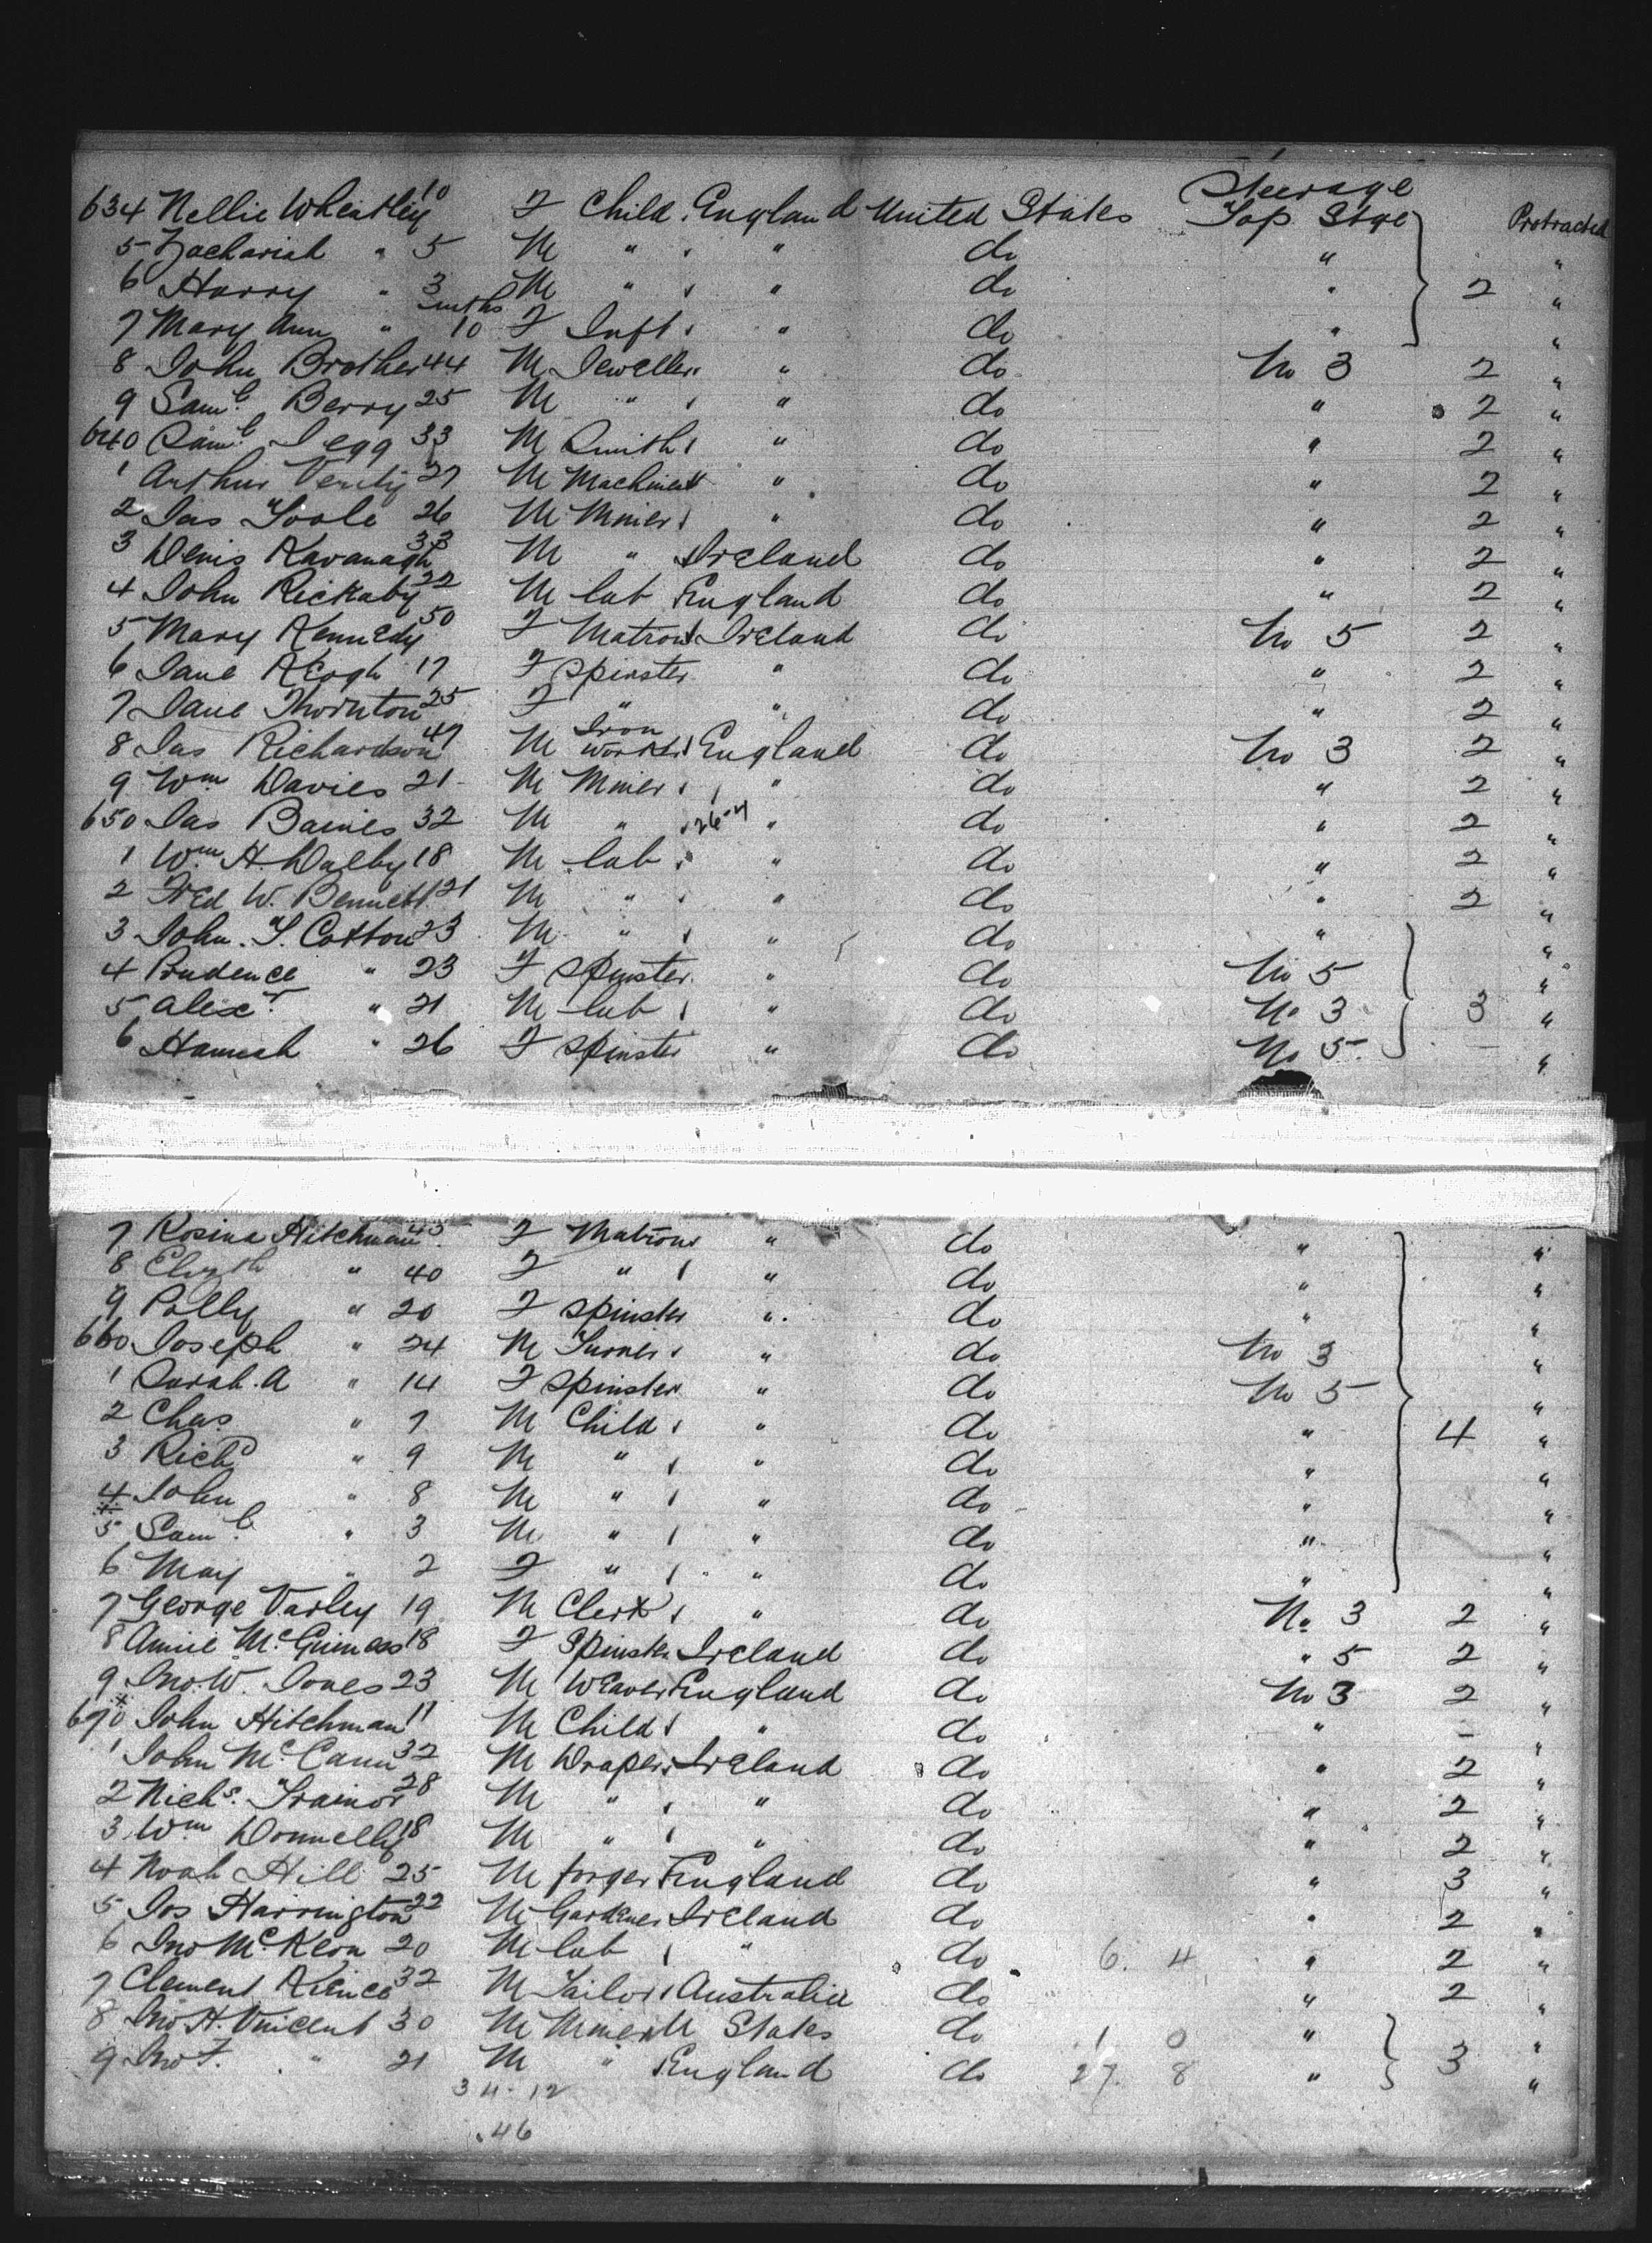 Steerage
634 Nellie Wheatley 10 F Child England United States Top Stge Protracted
5 Zachariah " 5 M " " do " "
6 Harry " 3 M " " do " 2 "
7 Mary Ann " 10 mths F Inft " do " "
8 John Brother 44 M Jeweller " do No 3 2 "
9 Saml Berry 25 M " " do " 2 "
640 Saml Legg 33 M Smith " do " 2 "
1 Arthur Verity 27 M Machinest " do " 2 "
2 Jas Toole 26 M Miner " do " 2 "
3 Denis Kavanagh 33 M " Ireland do " 2 "
4 John Rickaby 22 M lab England do " 2 "
5 Mary Kennedy 50 F Matron Ireland do No 5 2 "
6 Jane Keogh 17 F Spinster " do " 2 "
7 Jane Thornton 25 F " " do " 2 "
8 Jas Richardson 47 M Iron Worker England do No 3 2 "
9 Wm Davies 21 M Miner " do " 2 "
650 Jas Baines 32 M " 26-4 " do " 2 "
1 Wm H. Dalby 18 M lab " do " 2 "
2 Fred W. Bennett 21 M " " do " 2 "
3 John. T. Cotton 23 M " " do " "
4 Prudence " 23 F Spinster " do No 5 "
5 Alexr " 21 M lab " do No 3 3 "
6 Hannah " 26 F Spinster " do No 5 "
7 Rosina Hitchman 45 F Matron " do " "
8 Elizth " 40 F " " do " "
9 Polly " 20 F Spinster " do " "
660 Joseph " 24 M Turner " do No 3 "
1 Sarah. A " 14 F Spinster " do No 5 "
2 Chas " 7 M Child " do " 4 "
3 Richd " 9 M " " do " "
4 John " 8 M " " do " "
5 Saml " 3 M " " do " "
6 May " 2 F " " do " "
7 George Varley 19 M Clerk " do No 3 2 "
8 Annie McGuiness 18 F Spinster Ireland do " 5 2 "
9 Jno. W. Jones 23 M Weaver England do No 3 2 "
670 John Hitchman 11 M Child " do " - "
1 John McCann 32 M Draper Ireland do " 2 "
2 Nichs. Trainor 28 M " " do " 2 "
3 Wm Donnelly 18 M " " do " 2 "
4 Noah Hill 25 M forger England do " 3 "
5 Jos Harrington 22 M Gardener Ireland do " 2 "
6 Jno McKeon 20 M lab " do 6. 4 " 2 "
7 Clement 32 M Tailor Australia do " 2 "
8 Jno H. Vincent 30 M Miner U States do 1 0 " "
9 Jno F. " 21 M " England do 27. 8 " 3 "
34-12
.46